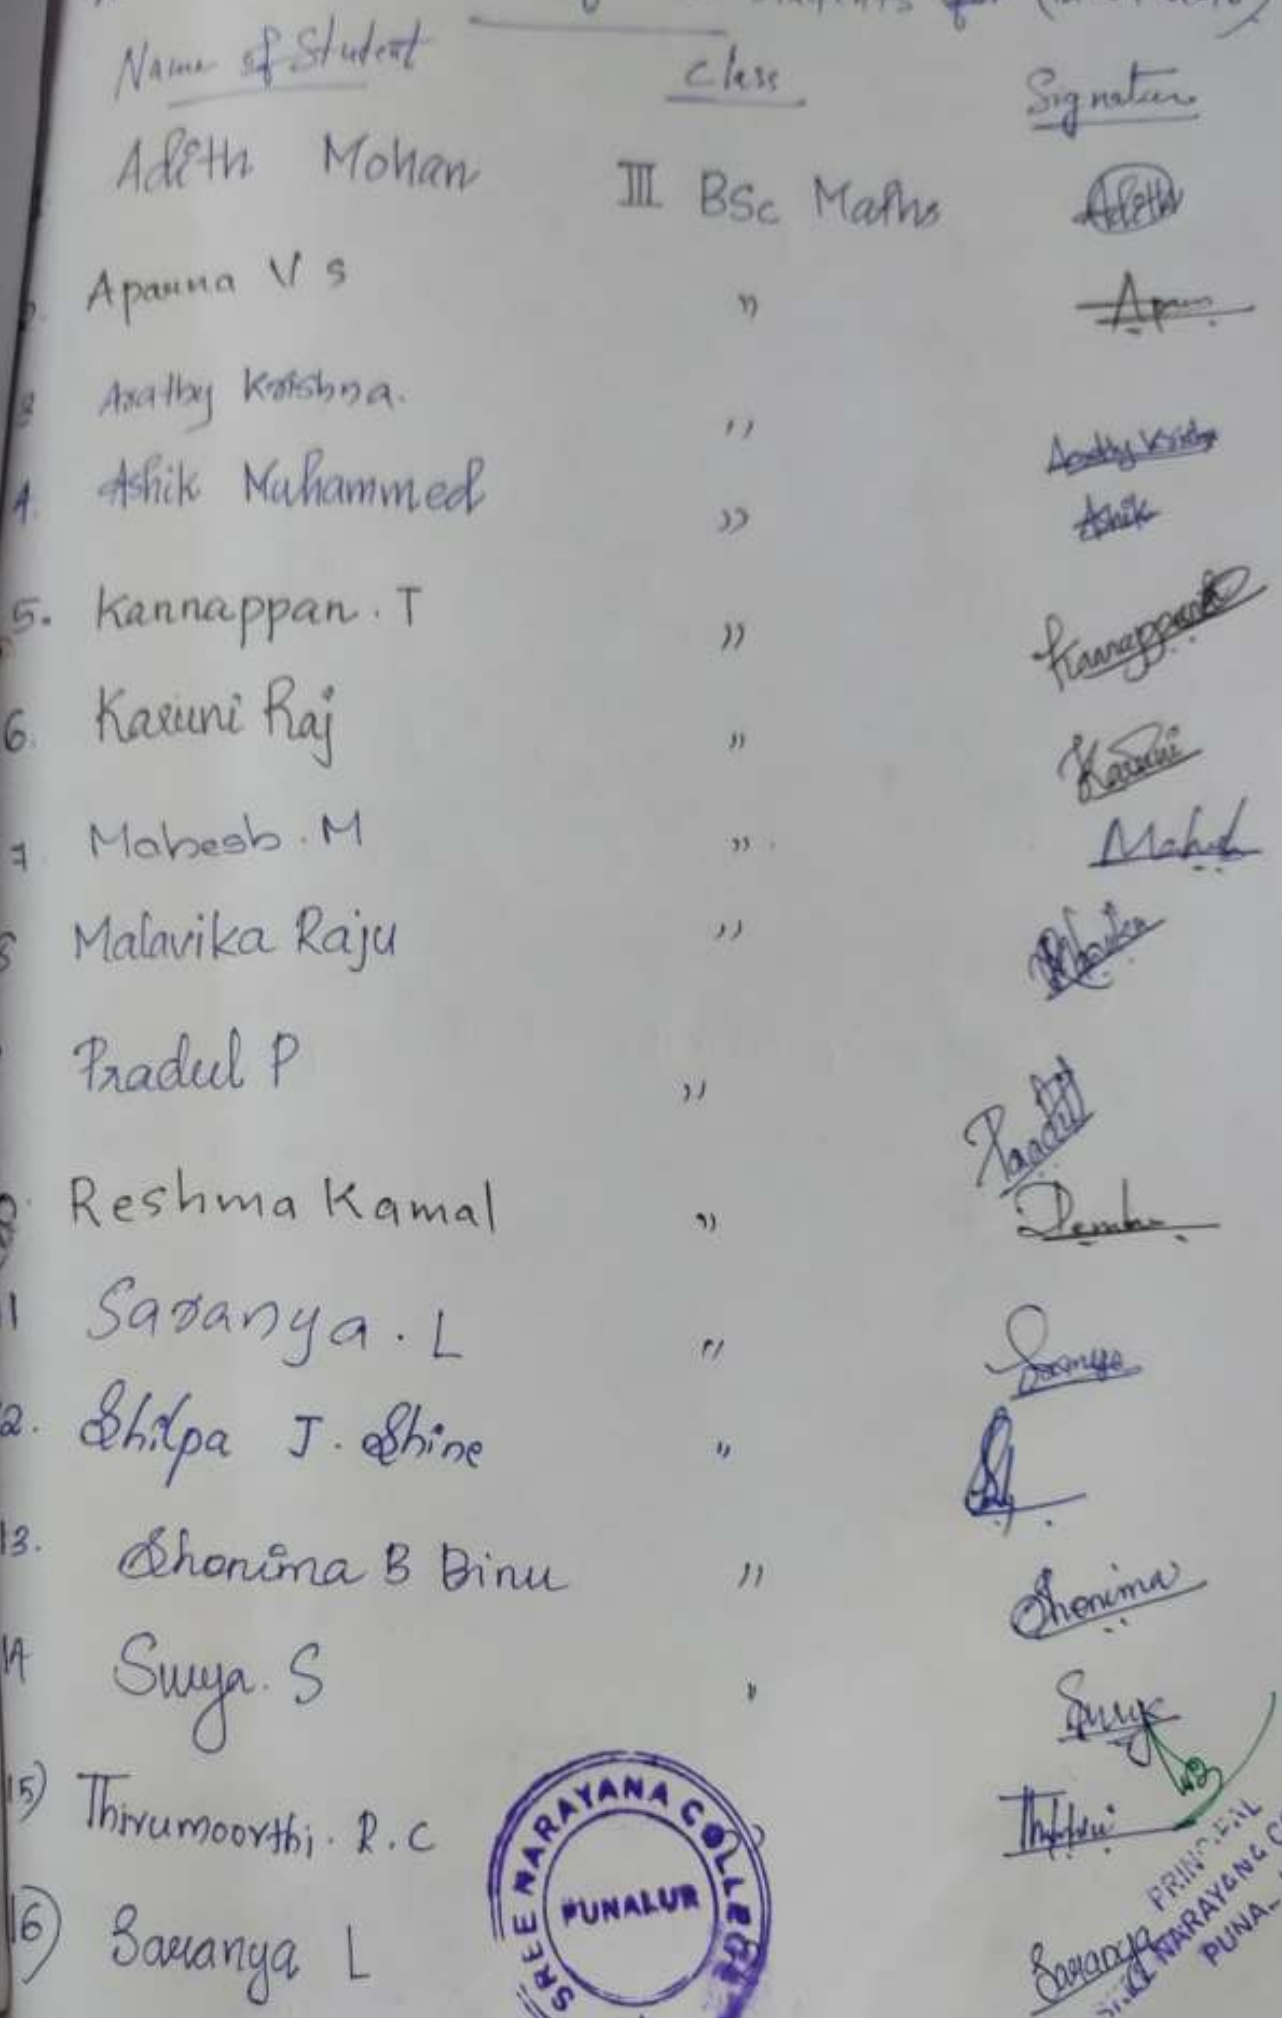 Name of Student Class Signature
Adith Mohan III BSc Maths Adith
Aparna V S " Aparn
3 Arathy Krishna. " Arathy Krishna
4. Ashik Muhammed " Ashik
5. Kannappan. T " Kannappan
6. Karuni Raj " Karuni
7. Mahesh. M " Mahesh
8 Malavika Raju "
Pradul P " Pradul
Reshma Kamal "
11 Saranya. L " Saranya
12. Shilpa J. Shine "
13. Shonima B Binu " Shonima
14 Surya. S " Surya
15) Thirumoorthi. R.C
16) Saranya L Saranya
SREE NARAYANA COLLEGE
PUNALUR
PRINCIPAL
NARAYANA
PUNA